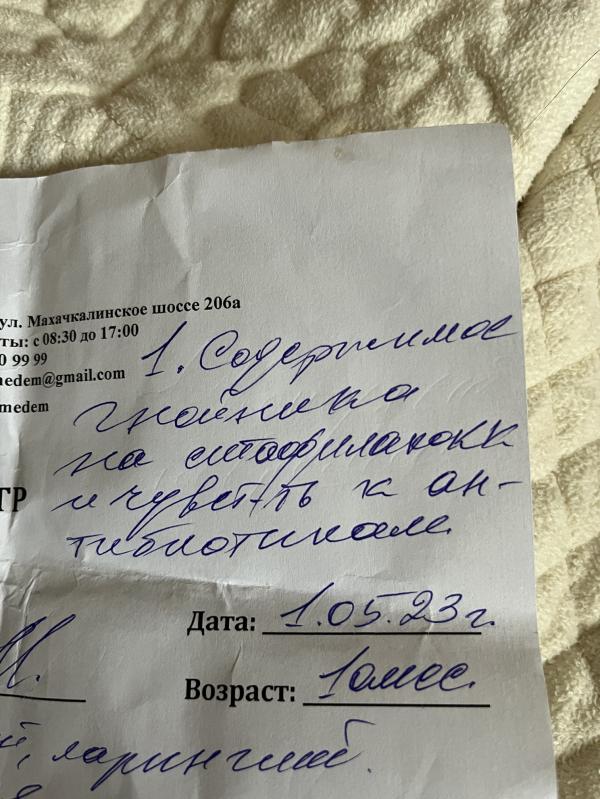 ул. Махачкалинское шоссе 206а
ты: с 08:30 до 17:00
0 99 99
medem@gmail.com
medem
1. Содержимое
гнойника
на стафилакокк
и чувст-ть к ан-
тибиотикам
ТР
Дата: 1.05.23г.
Возраст: 10мес.
й, ларингит.